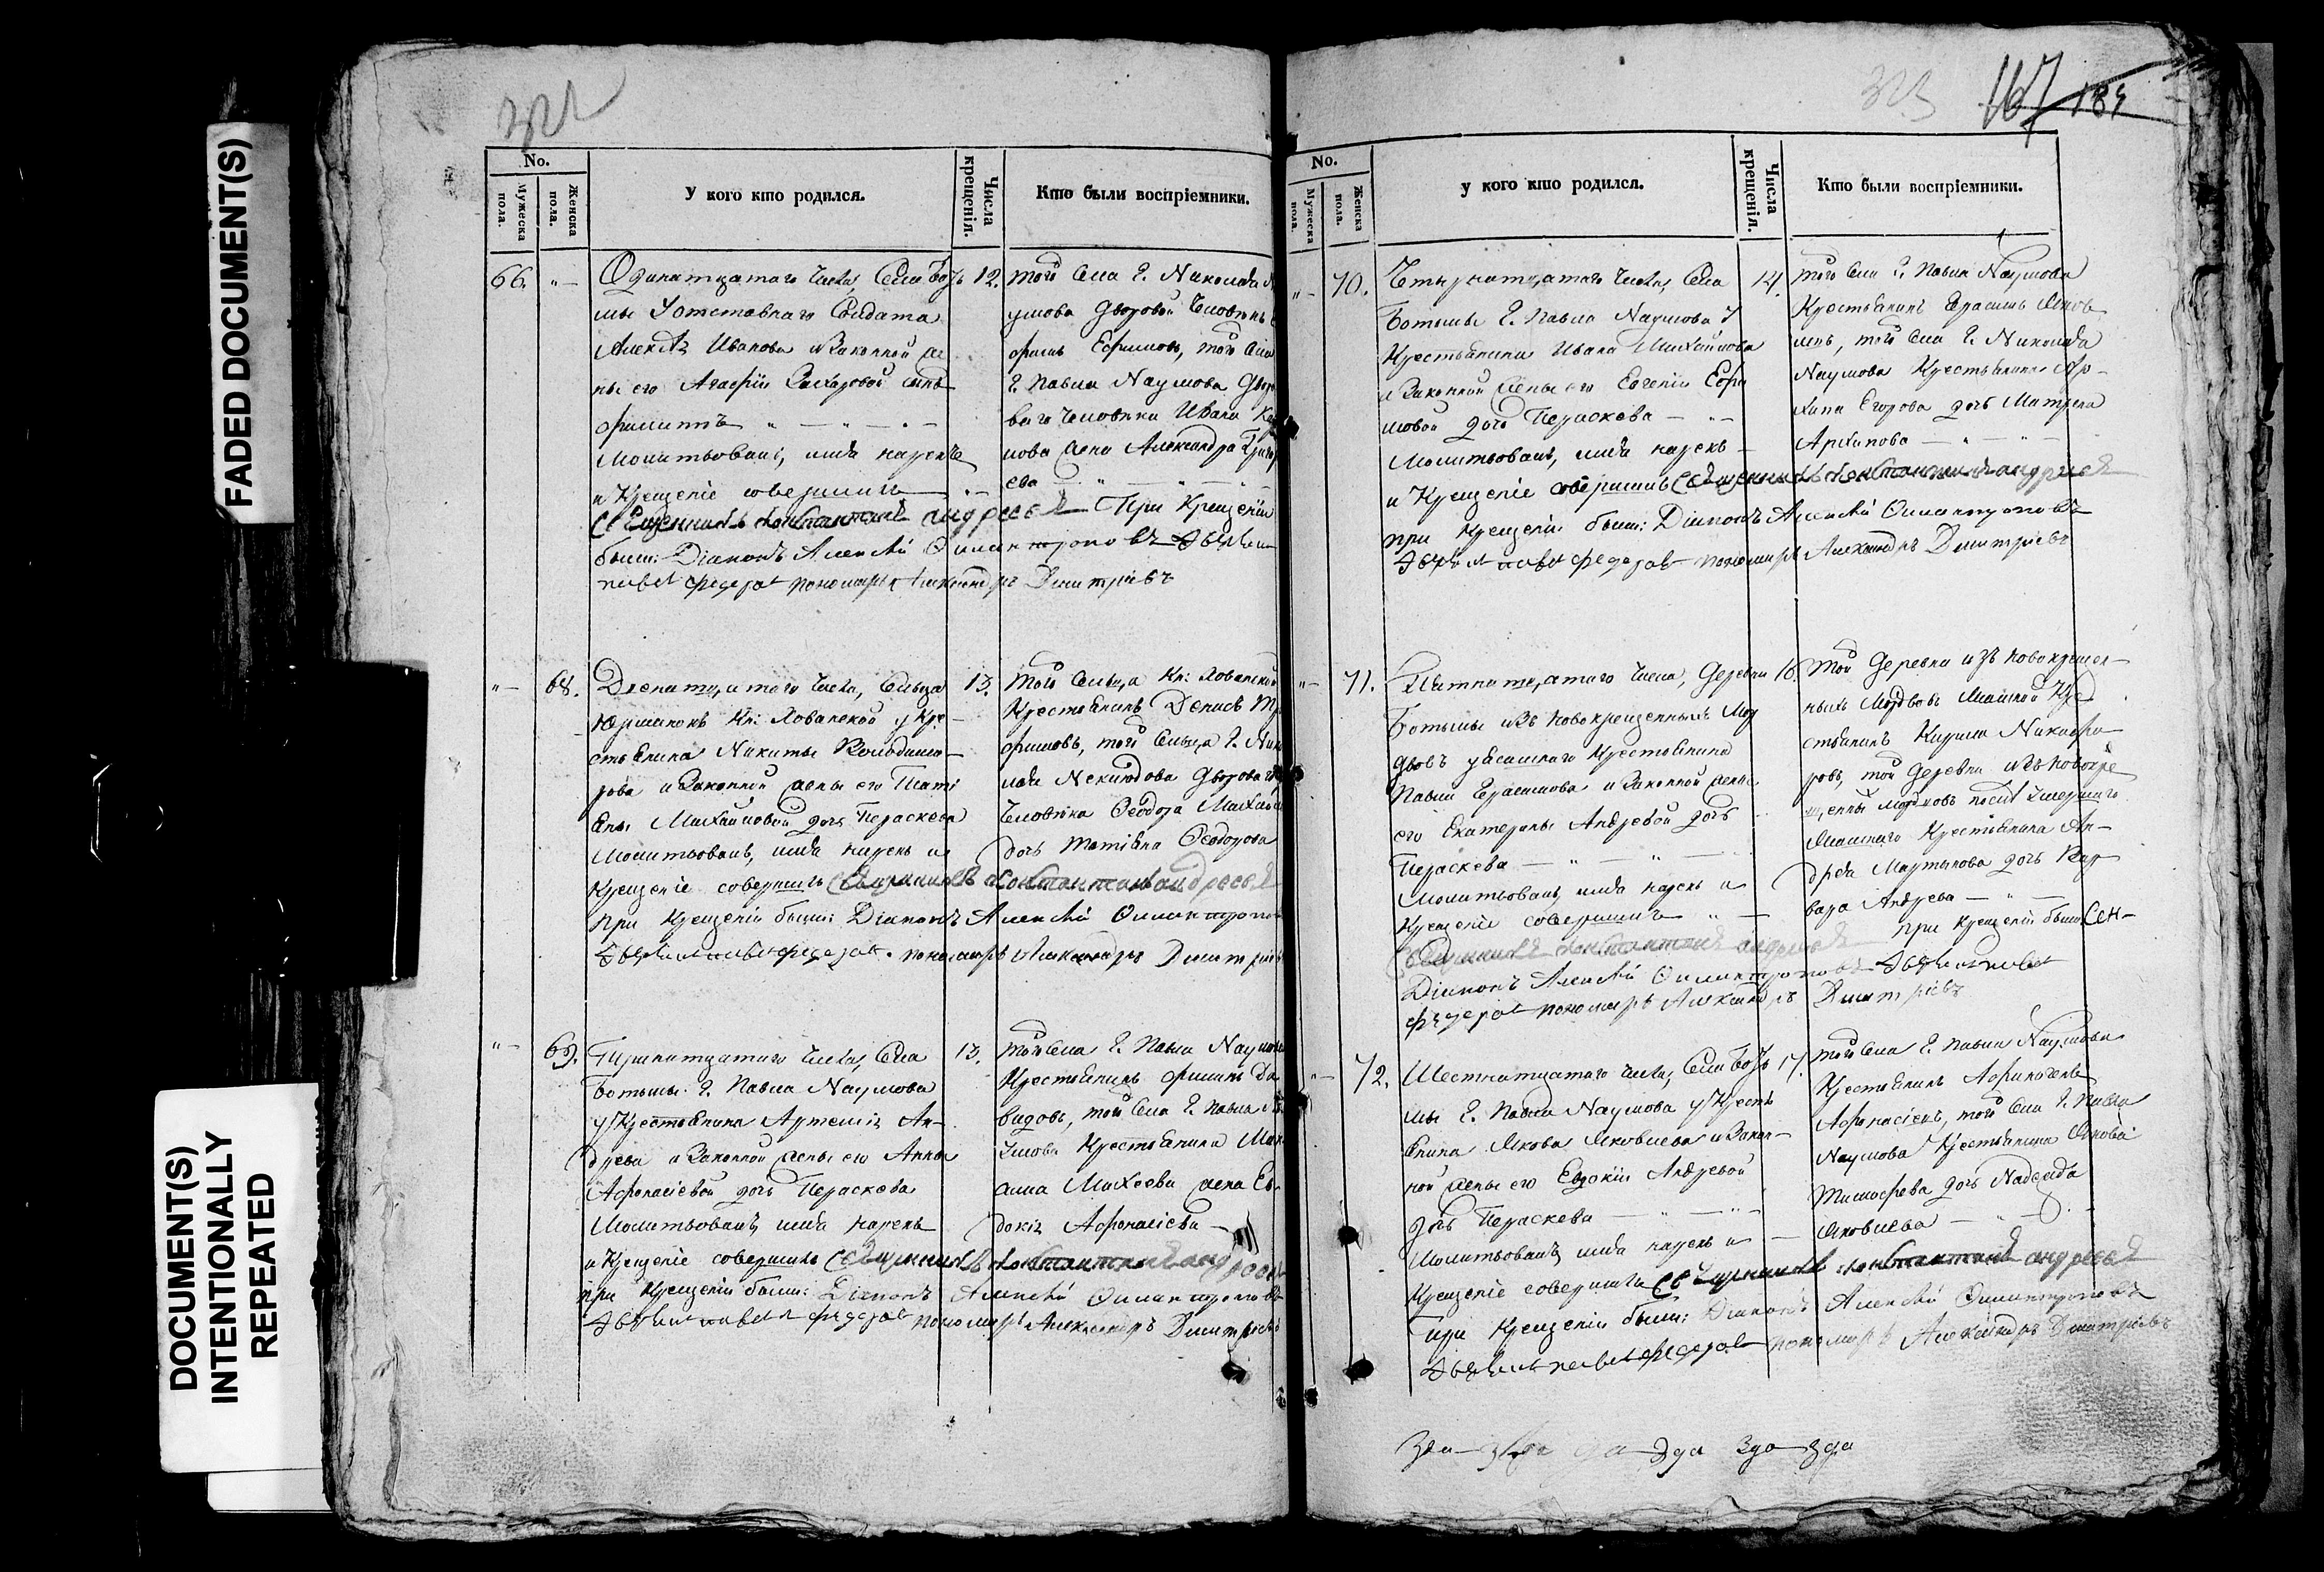 FADED DOCUMENT(S)
DOCUMENT(S)
INTENTIONALLY
REPEATED
322
No.
Мужеска пола.
Женска пола.
У кого кто родился.
Числа крещенія.
Кто были воспріемники.
66. "— Одинатцатаго числа, Села Боть
мы У отставнаго Солдата
Алексѣя Иванова и Законной же
ны его Агафіи Захаровой сынъ
Филиппъ
Молитвовалъ, имя нарекъ
и Крещеніе совершилъ
Священникъ Константинъ Андреевъ При Крещеніи
были: Діаконъ Алексѣй
Федоровъ пономарь Александръ Дмитріевъ
12. того Села Г. Николая
умова Дворовой Человѣкъ
Ефимовъ, того Села
Г. Павла Наумова Дворо
ваго Человѣка Ивана
нова жена Александра Григорь
ева
"— 68. Двенатцатаго числа, Сельца
Кн: Хованской у Кре-
стьянина Никиты Володими-
рова и Законной жены его Тати
яны Михайловой дочь Параскева
Молитвовалъ, имя нарекъ и
Крещеніе совершилъ Священникъ Константинъ Андреевъ
при Крещеніи были: Діаконъ Алексѣй
Федоровъ. пономарь Александръ Дмитріевъ
13. того Сельца Кн: Хованской
Крестьянинъ Денисъ
того Сельца Г. Нико
лая Дворова
Человѣка Феодора Михай
дочь Татіяна Феодорова
"— 69. Тринатцатаго числа, Села
Ботьмы Г. Павла Наумова
у Крестьянина Артемія Ан-
дреева и Законной жены его Анны
Афонасіевой дочь Параскева
Молитвовалъ, имя нарекъ
и Крещеніе совершилъ Священникъ Константинъ Андреевъ
при Крещеніи были: Діаконъ Алексѣй
Федоровъ пономарь Александръ Дмитріевъ
13. того Села Г. Павла Наумова
Крестьянинъ Филипъ Да
видовъ, того Села Г. Павла На
умова Крестьянина
Михеева жена Ев-
докія Афонасіева
323 167 184
No.
Мужеска пола.
Женска пола.
У кого кто родился.
Числа крещенія.
Кто были воспріемники.
"— 70. Четырнатцатаго числа, Села
Ботьмы Г. Павла Наумова У
Крестьянина Ивана Михайлова
и Законной жены его Евгеніи Ефи
мовой дочь Параскева
Молитвовалъ, имя нарекъ
и Крещеніе совершилъ Священникъ Константинъ Андреевъ
при Крещеніи были: Діаконъ Алексѣй
Федоровъ пономарь Александръ Дмитріевъ
14. того Села Г. Павла Наумова
Крестьянинъ Герасимъ Яков
левъ, того Села Г. Николая
Наумова Крестьянина Ар-
хипа Егорова дочь Матрена
Архипова
"— 71. Пятнатцатаго числа, Деревни
Ботьмы изъ новокрещенныхъ Мор
двовъ Крестьянина
Павла Герасимова и Законной жены
его Екатерины Андреевой дочь
Параскева
Молитвовалъ, имя нарекъ и
Крещеніе совершилъ
Священникъ Константинъ Андреевъ
Діаконъ Алексѣй
Федоровъ пономарь Александръ Дмитріевъ
16. той Деревни изъ новокрещен-
ныхъ Мордвовъ Кре
стьянинъ Кирила Никифо-
ровъ, той Деревни изъ новокре
щенныхъ мордвовъ послѣ умершаго
Крестьянина Ан-
дрея Мартынова дочь Вар-
вара Андреева
при Крещеніи были
"— 72. Шестнатцатаго числа, Села Боть
мы Г. Павла Наумова у Кресть
янина Якова Яковлева и Закон-
ной жены его Евдокіи Андреевой
дочь Параскева
Молитвовалъ, имя нарекъ и
Крещеніе совершилъ Священникъ Константинъ Андреевъ
При Крещеніи были: Діаконъ Алексѣй
Федоровъ пономарь Александръ Дмитріевъ
17. того Села Г. Павла Наумова
Крестьянинъ Афиногенъ
Афонасіевъ, того Села Г. Павла
Наумова Крестьянина Якова
Тимофеева дочь Надежда
Яковлева